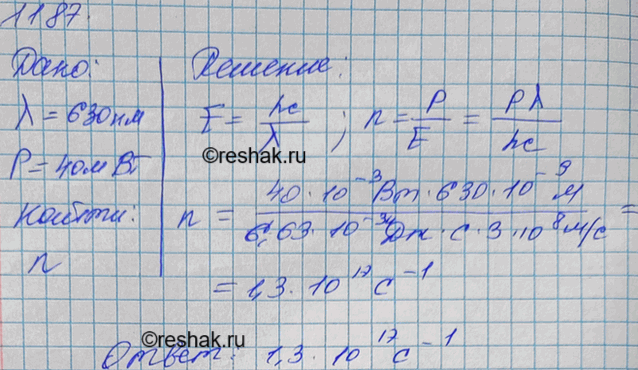 1187.
Дано:
λ = 630 нм
P = 40 мВт
Найти:
n
Решение:
E = hc/λ ; n = P/E = Pλ/hc
©reshak.ru
n = 40·10⁻³Вт·630·10⁻⁹м / 6,63·10⁻³⁴Дж·с·3·10⁸м/с =
= 1,3·10¹⁷с⁻¹
©reshak.ru
Ответ: 1,3·10¹⁷с⁻¹